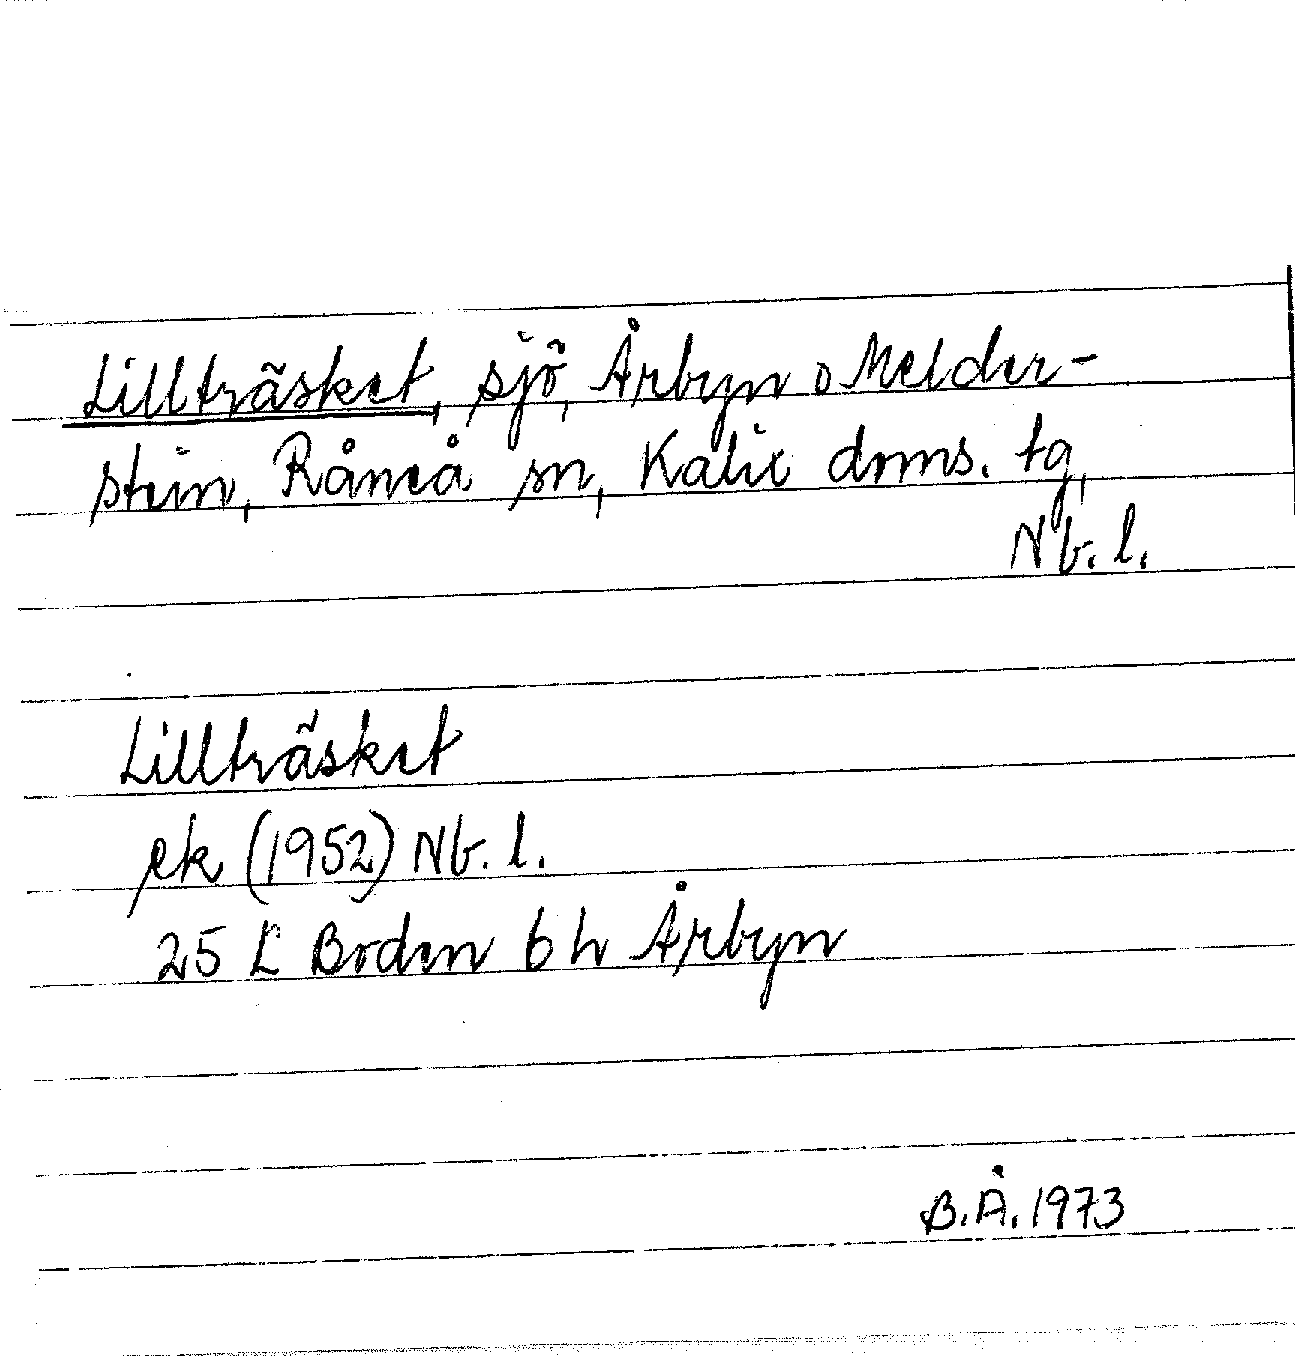 Lillträsket, sjö, Årbyn o Melder-
stein, Råneå sn, Kalix doms. tg,
Nb. l.
Lillträsket
ek (1952) Nb. l.
25 L Boden 6 h Årbyn
B.Å. 1973